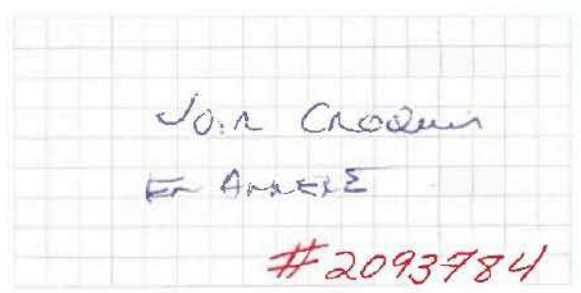 Voir Croquis
En Annexe
#2093784